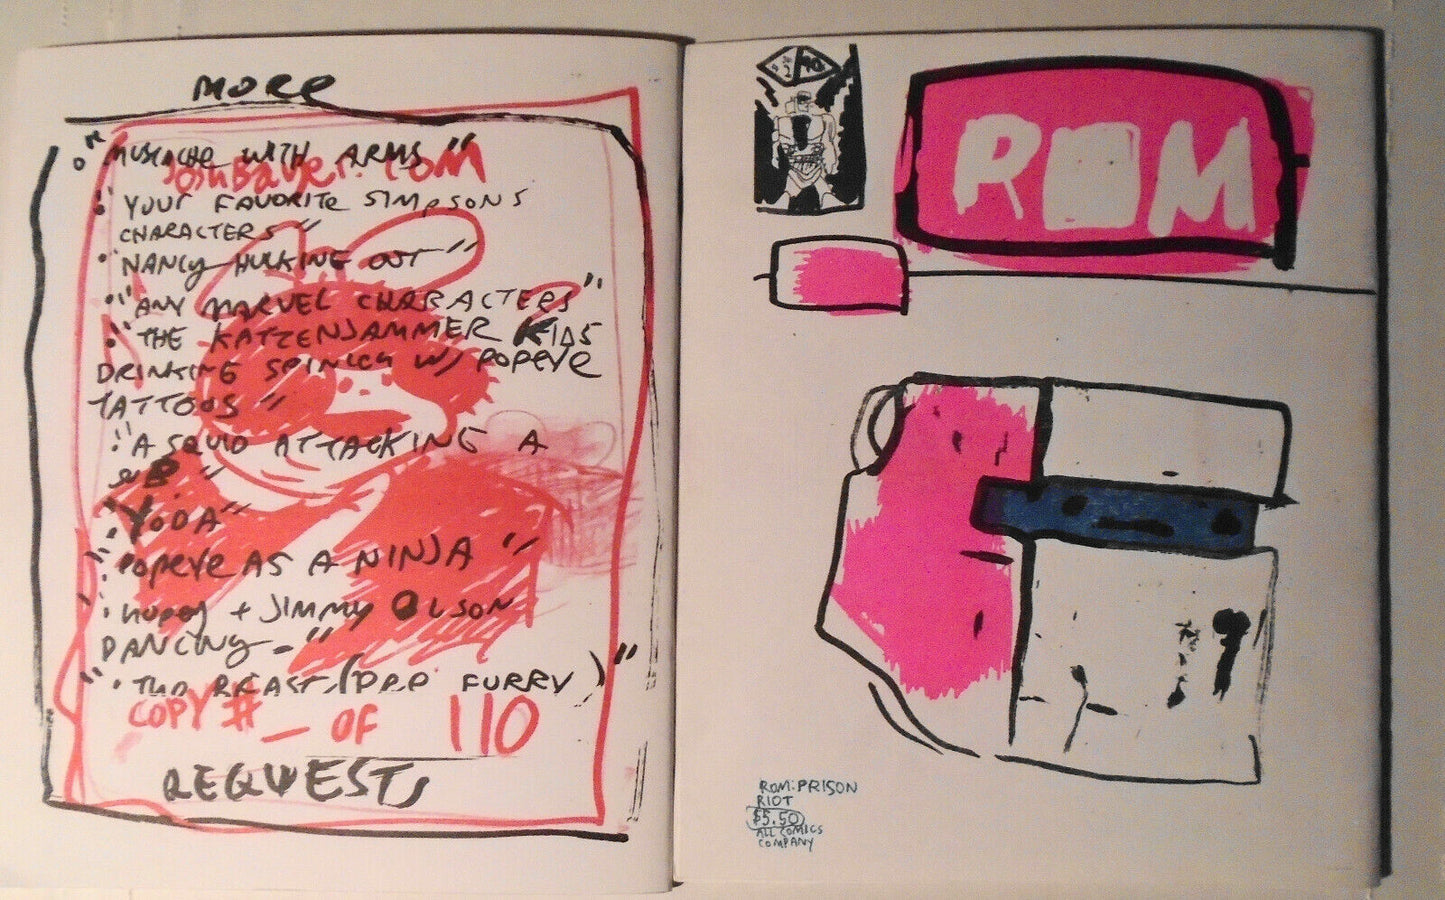 MORE
"MUSTACHE WITH ARMS"
JOSHBAYER.COM
"YOUR FAVORITE SIMPSONS
CHARACTERS"
"NANCY HULKING OUT"
"ANY MARVEL CHARACTERS"
"THE KATZENJAMMER KIDS
DRINKING SPINICH W/ POPEYE
TATTOOS"
"A SQUID ATTACKING A
SUB"
"YODA"
POPEYE AS A NINJA"
+ JIMMY OLSON
DANCING-"
"THE BEAST (PRE FURRY)"
COPY # _ OF 110
REQUESTS
ROM
ROM: PRISON
RIOT
$5.50
ALL COMICS
COMPANY